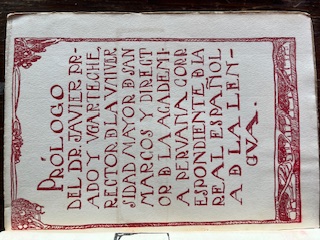 PRÓLOGO
DEL DR. JAVIER PR-
ADO Y UGARTECHE,
RECTOR D LA UNIVER
SIDAD MAYOR D SAN
MARCOS Y DIRECT
OR D LA ACADEMI-
A PERUANA CORR
ESPONDIENTE D LA
REAL ESPAÑOL
A D LA LEN-
GVA.